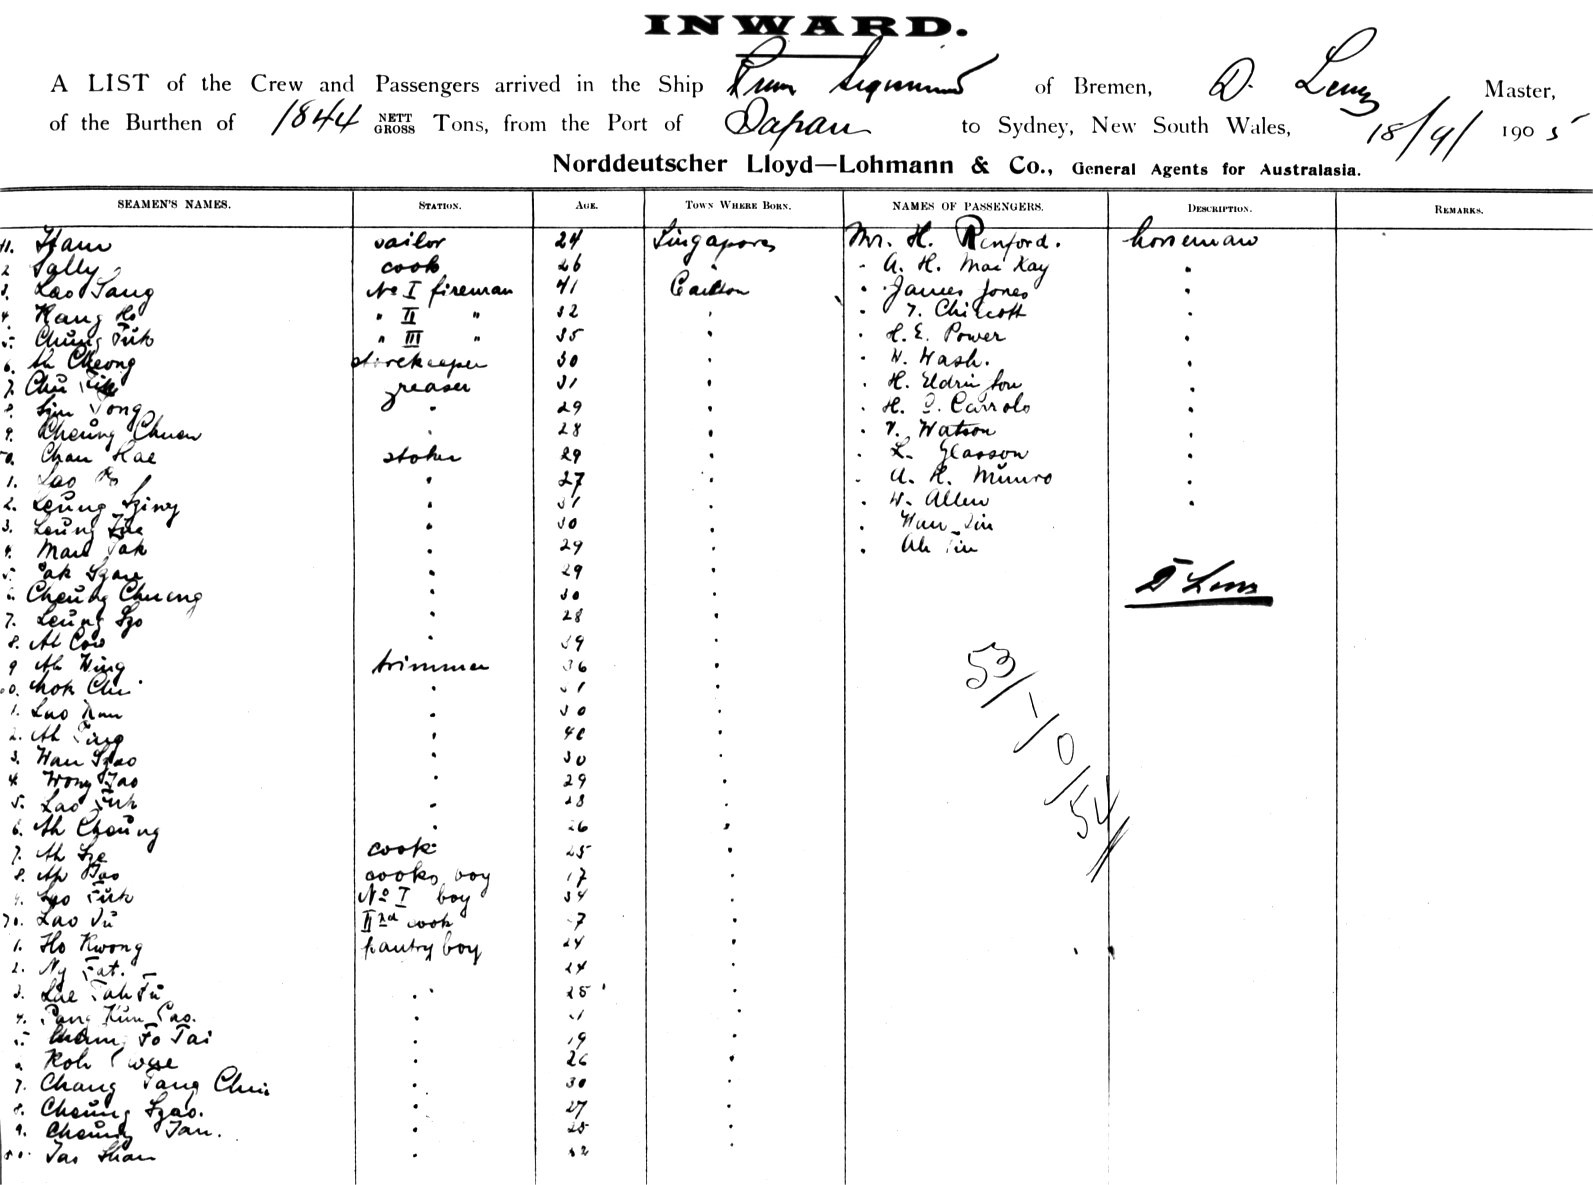 INWARD.
A LIST of the Crew and Passengers arrived in the Ship Prinz Sigismund of Bremen, D. Lenz Master,
of the Burthen of 1844 NETT GROSS Tons, from the Port of Japan to Sydney, New South Wales, 18/9/1905
Norddeutscher Lloyd—Lohmann & Co., General Agents for Australasia.
SEAMEN'S NAMES. STATION. AGE. TOWN WHERE BORN. NAMES OF PASSENGERS. DESCRIPTION. REMARKS.
41. sailor 24 Singapore Mr. H. Renford. horseman
2 Sally cook 26 " " A. H. Mac Kay "
3. Lao Sang No I fireman 41 Canton " James Jones "
4. Kang Ho " II " 32 " " T. Chircott "
5. Chung Fuk " III " 35 " " H. E. Power "
6. Ah Cheong storekeeper 30 " " W. Wash. "
7. Chu greaser 31 " " H. "
8. Sim Tong " 29 " " H. Carrolo "
9. Cheung Chuen " 28 " " V. Watson "
50. Chan Hae stoker 29 " " L. Glasson "
1. Lao " 27 " " A. H. Munro "
2. Leung " 31 " " W. Allen "
3. Leung " 30 " "
4. Mau Tak " 29 " " Ah Tin
5. " 29 " D Lenz
6. Cheung Chueng " 30 "
7. Leung Szo " 28 "
8. Ah Cow " 39 "
9 Ah Wing trimmer 36 "
60. Mok Chi " 31 "
1. Lao " 30 "
2. Ah Ting " 40 "
3. Wan Szao " 30 "
4. Wong Tao " 29 "
5. Lao Fuk " 28 "
6. Ah Cheung " 26 "
7. Ah Sze cook 25 "
8. Ah Tao cooks boy 17 "
9. Szo Fuk No I boy 34 "
70. Lao IInd cook 7 "
1. Ho Kwong pantry boy 24 "
2. Ng Fat. " 24 "
3. Lae Tak Fu " 25 "
4. Pang Kun " "
5. Fo Tai " 19 "
6. Koh " 26 "
7. Chang Tang Chui " 30 "
8. Cheung Szao. " 27 "
9. Cheung Tan. " 25 "
80. Tao Shan " 32
53/-10/54